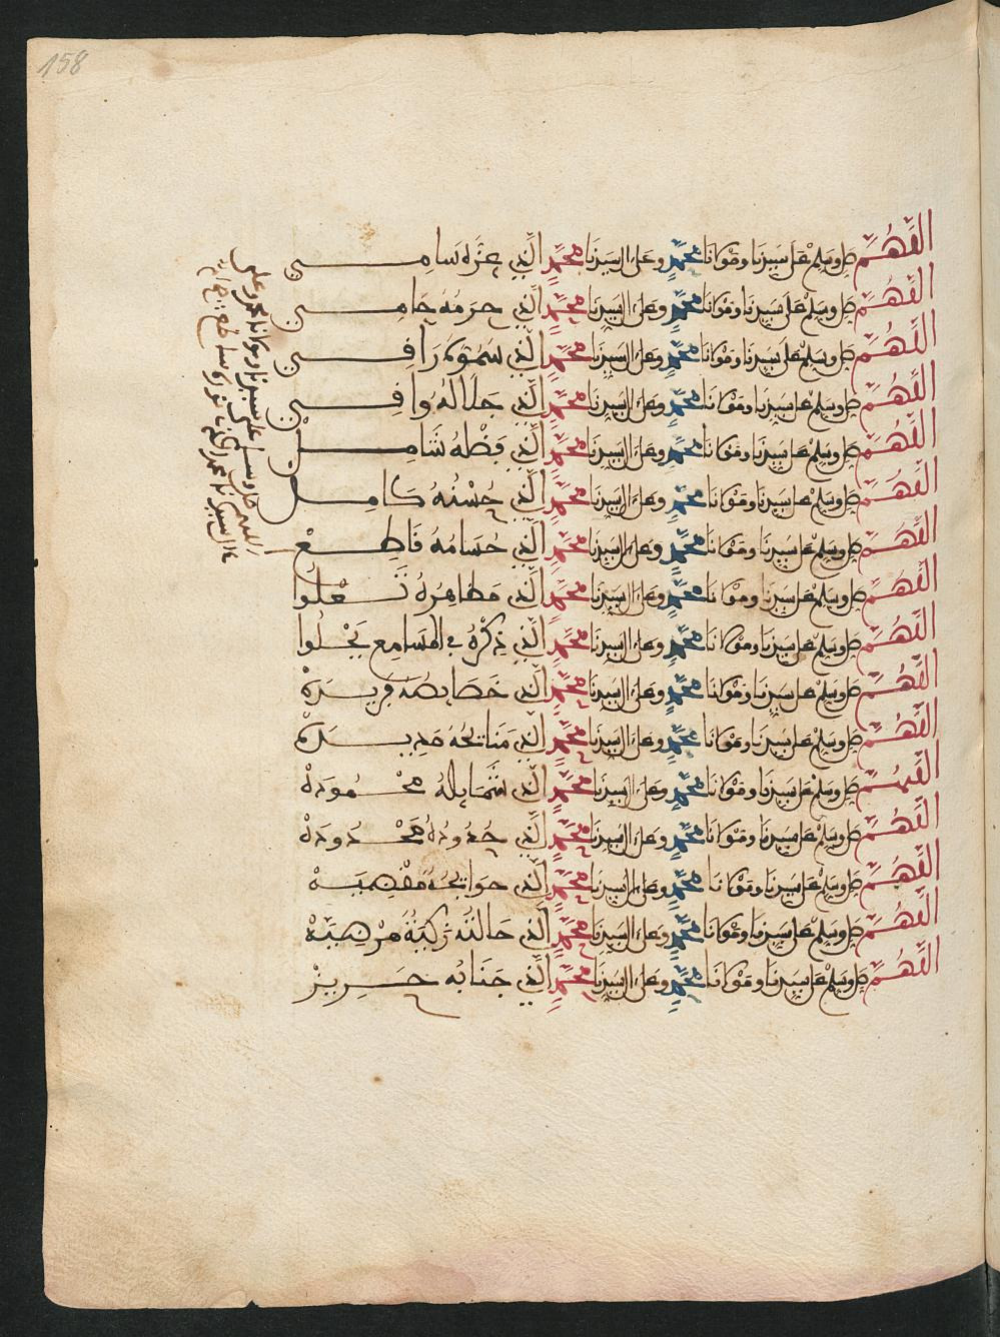 158
اللهم صل وسلم على سيدنا ومولانا محمد وعلى ال سيدنا محمد الذي عزه سامي
اللهم صل وسلم على سيدنا ومولانا محمد وعلى ال سيدنا محمد الذي حرمه حامي
اللهم صل وسلم على سيدنا ومولانا محمد وعلى ال سيدنا محمد الذي سموه رافي
اللهم صل وسلم على سيدنا ومولانا محمد وعلى ال سيدنا محمد الذي جلاله وافي
اللهم صل وسلم على سيدنا ومولانا محمد وعلى ال سيدنا محمد الذي فضله شامل
اللهم صل وسلم على سيدنا ومولانا محمد وعلى ال سيدنا محمد الذي حسنه كامل
اللهم صل وسلم على سيدنا ومولانا محمد وعلى ال سيدنا محمد الذي حسامه قاطع
اللهم صل وسلم على سيدنا ومولانا محمد وعلى ال سيدنا محمد الذي مظاهره تعلوا
اللهم صل وسلم على سيدنا ومولانا محمد وعلى ال سيدنا محمد الذي ذكره في المسامع يحلوا
اللهم صل وسلم على سيدنا ومولانا محمد وعلى ال سيدنا محمد الذي خصايصه فريدة
اللهم صل وسلم على سيدنا ومولانا محمد وعلى ال سيدنا محمد الذي مديدة
اللهم صل وسلم على سيدنا ومولانا محمد وعلى ال سيدنا محمد الذي شمايله محمودة
اللهم صل وسلم على سيدنا ومولانا محمد وعلى ال سيدنا محمد الذي حدوده محدودة
اللهم صل وسلم على سيدنا ومولانا محمد وعلى ال سيدنا محمد الذي حوايجه مقضية
اللهم صل وسلم على سيدنا ومولانا محمد وعلى ال سيدنا محمد الذي حالته زكية مرضية
اللهم صل وسلم على سيدنا ومولانا محمد وعلى ال سيدنا محمد الذي جنابه حريز
اللهم صل وسلم على سيدنا ومولانا محمد وعلى
ال سيدنا محمد الذي نوره ساطع